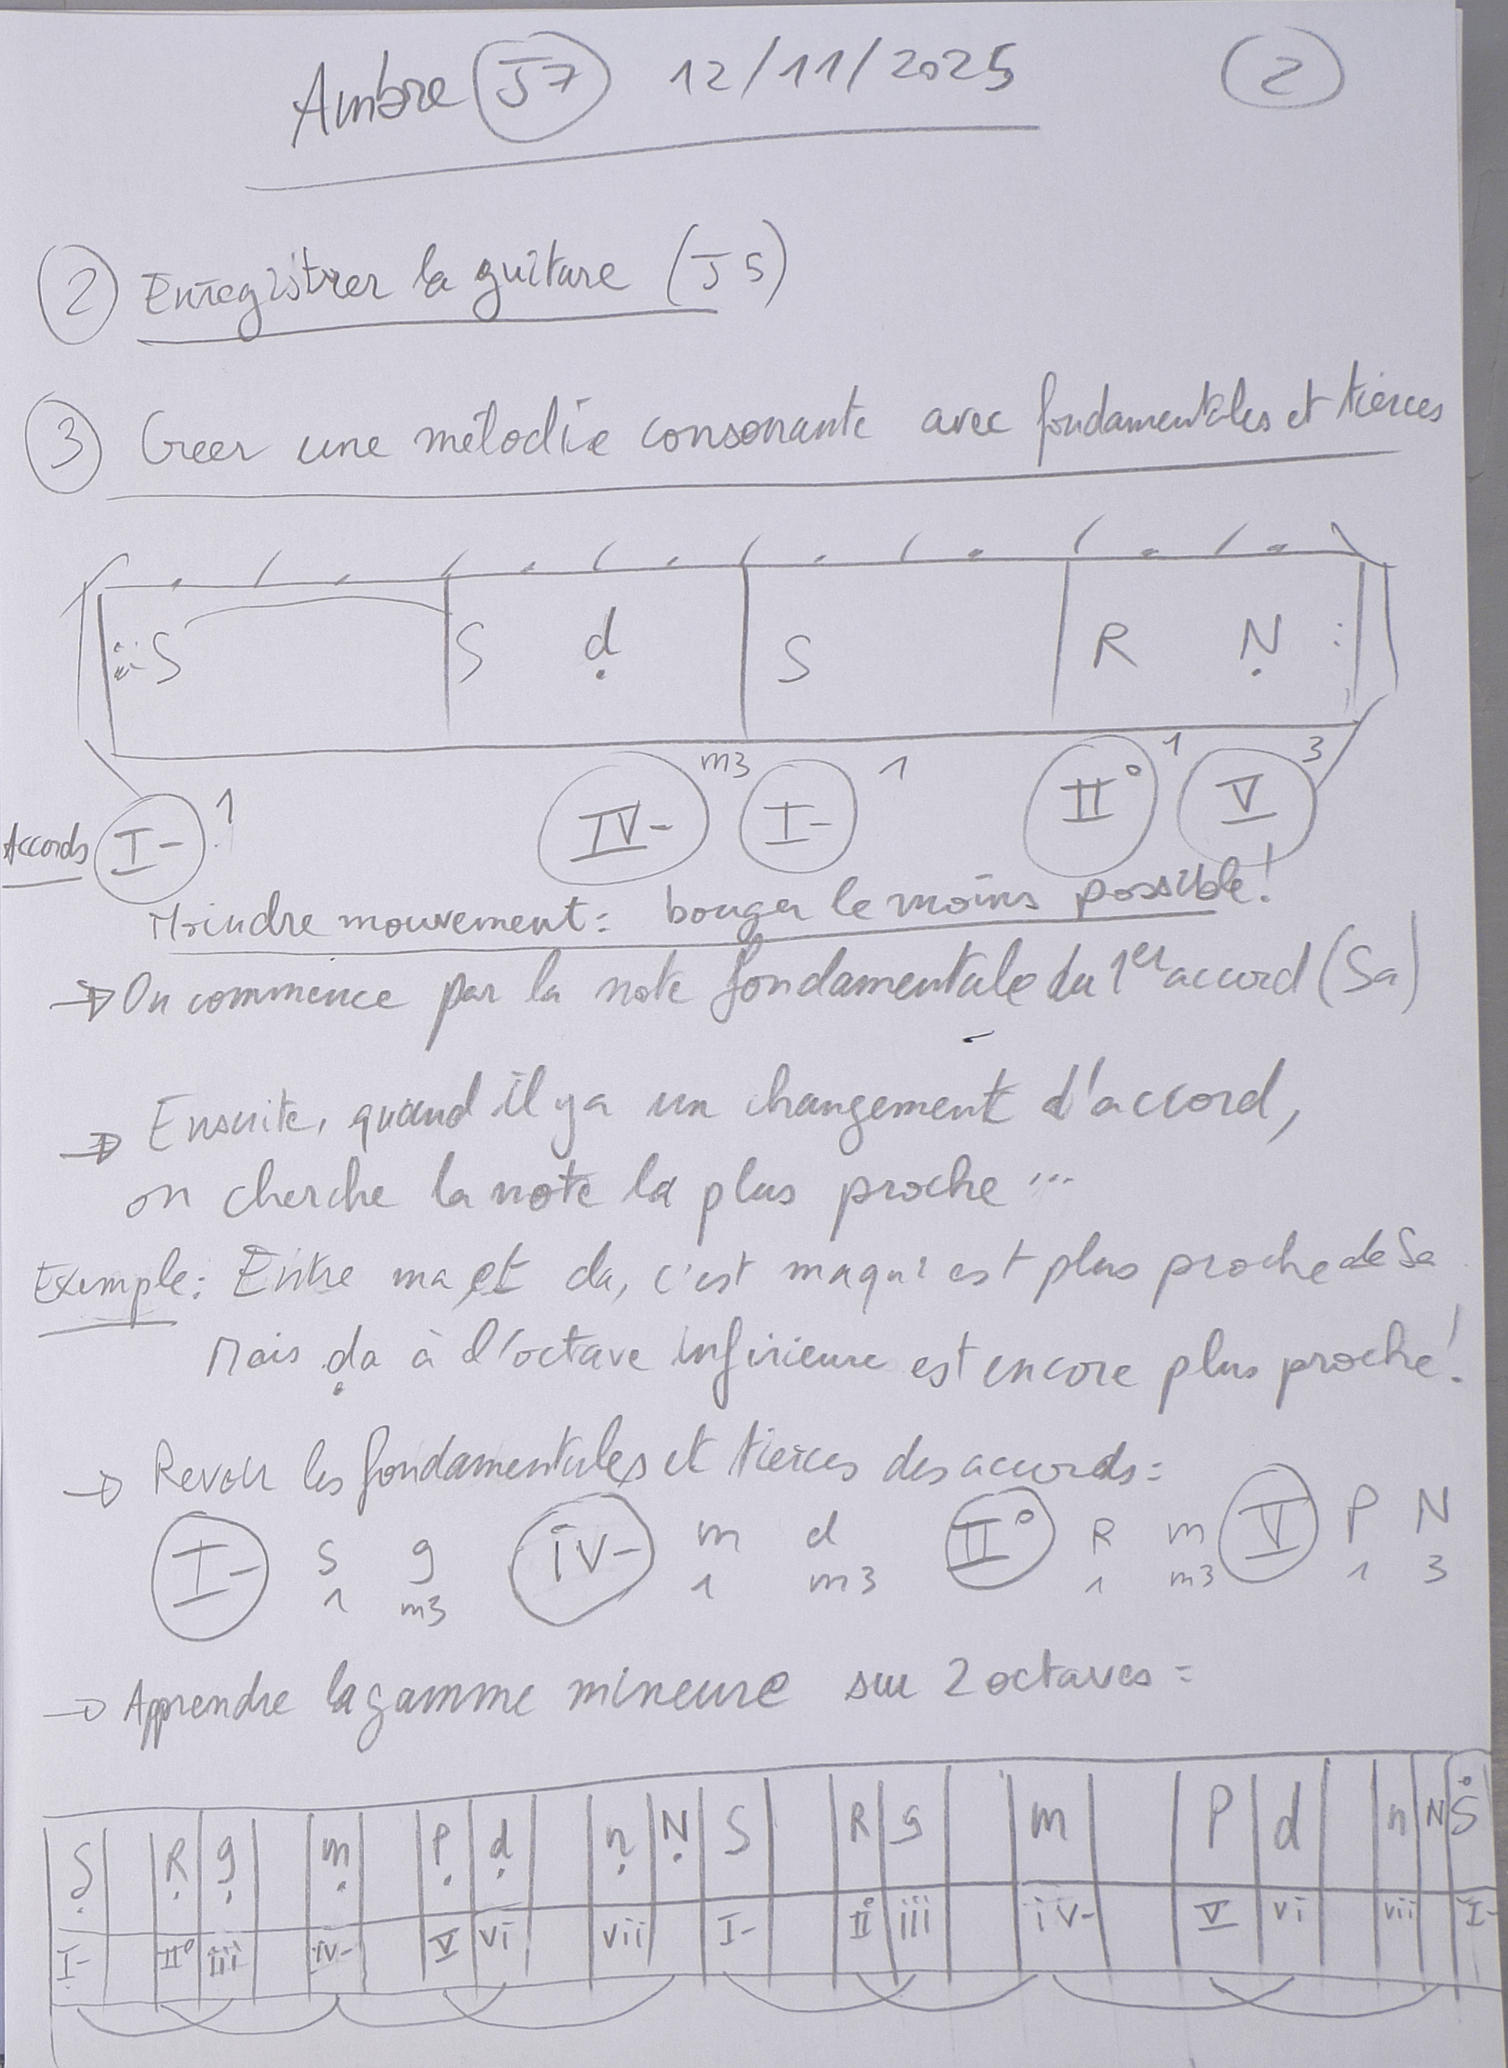 Ambre J7 12/11/2025 2
2 Enregistrer la guitare (J5)
3 Créer une mélodie consonante avec fondamentales et tierces
S S ḍ S R Ṇ :
Accords I- 1 IV- m3 I- 1 II° 1 V 3
Moindre mouvement : bouger le moins possible !
→ On commence par la note fondamentale du 1er accord (Sa)
→ Ensuite, quand il y a un changement d'accord,
on cherche la note la plus proche ...
Exemple : Entre ma et da, c'est ma qui est plus proche de Sa
Mais ḍa à l'octave inférieure est encore plus proche !
→ Revoir les fondamentales et tierces des accords :
I- S g iv- m d II° R m V P N
1 m3 1 m3 1 m3 1 3
→ Apprendre la gamme mineure sur 2 octaves =
Ṣ Ṛ g̣ ṃ P̣ ḍ ṇ Ṇ S R g m P d n N Ṡ
I- II° iii iv- V vi vii I- II° iii iv- V vi vii I-